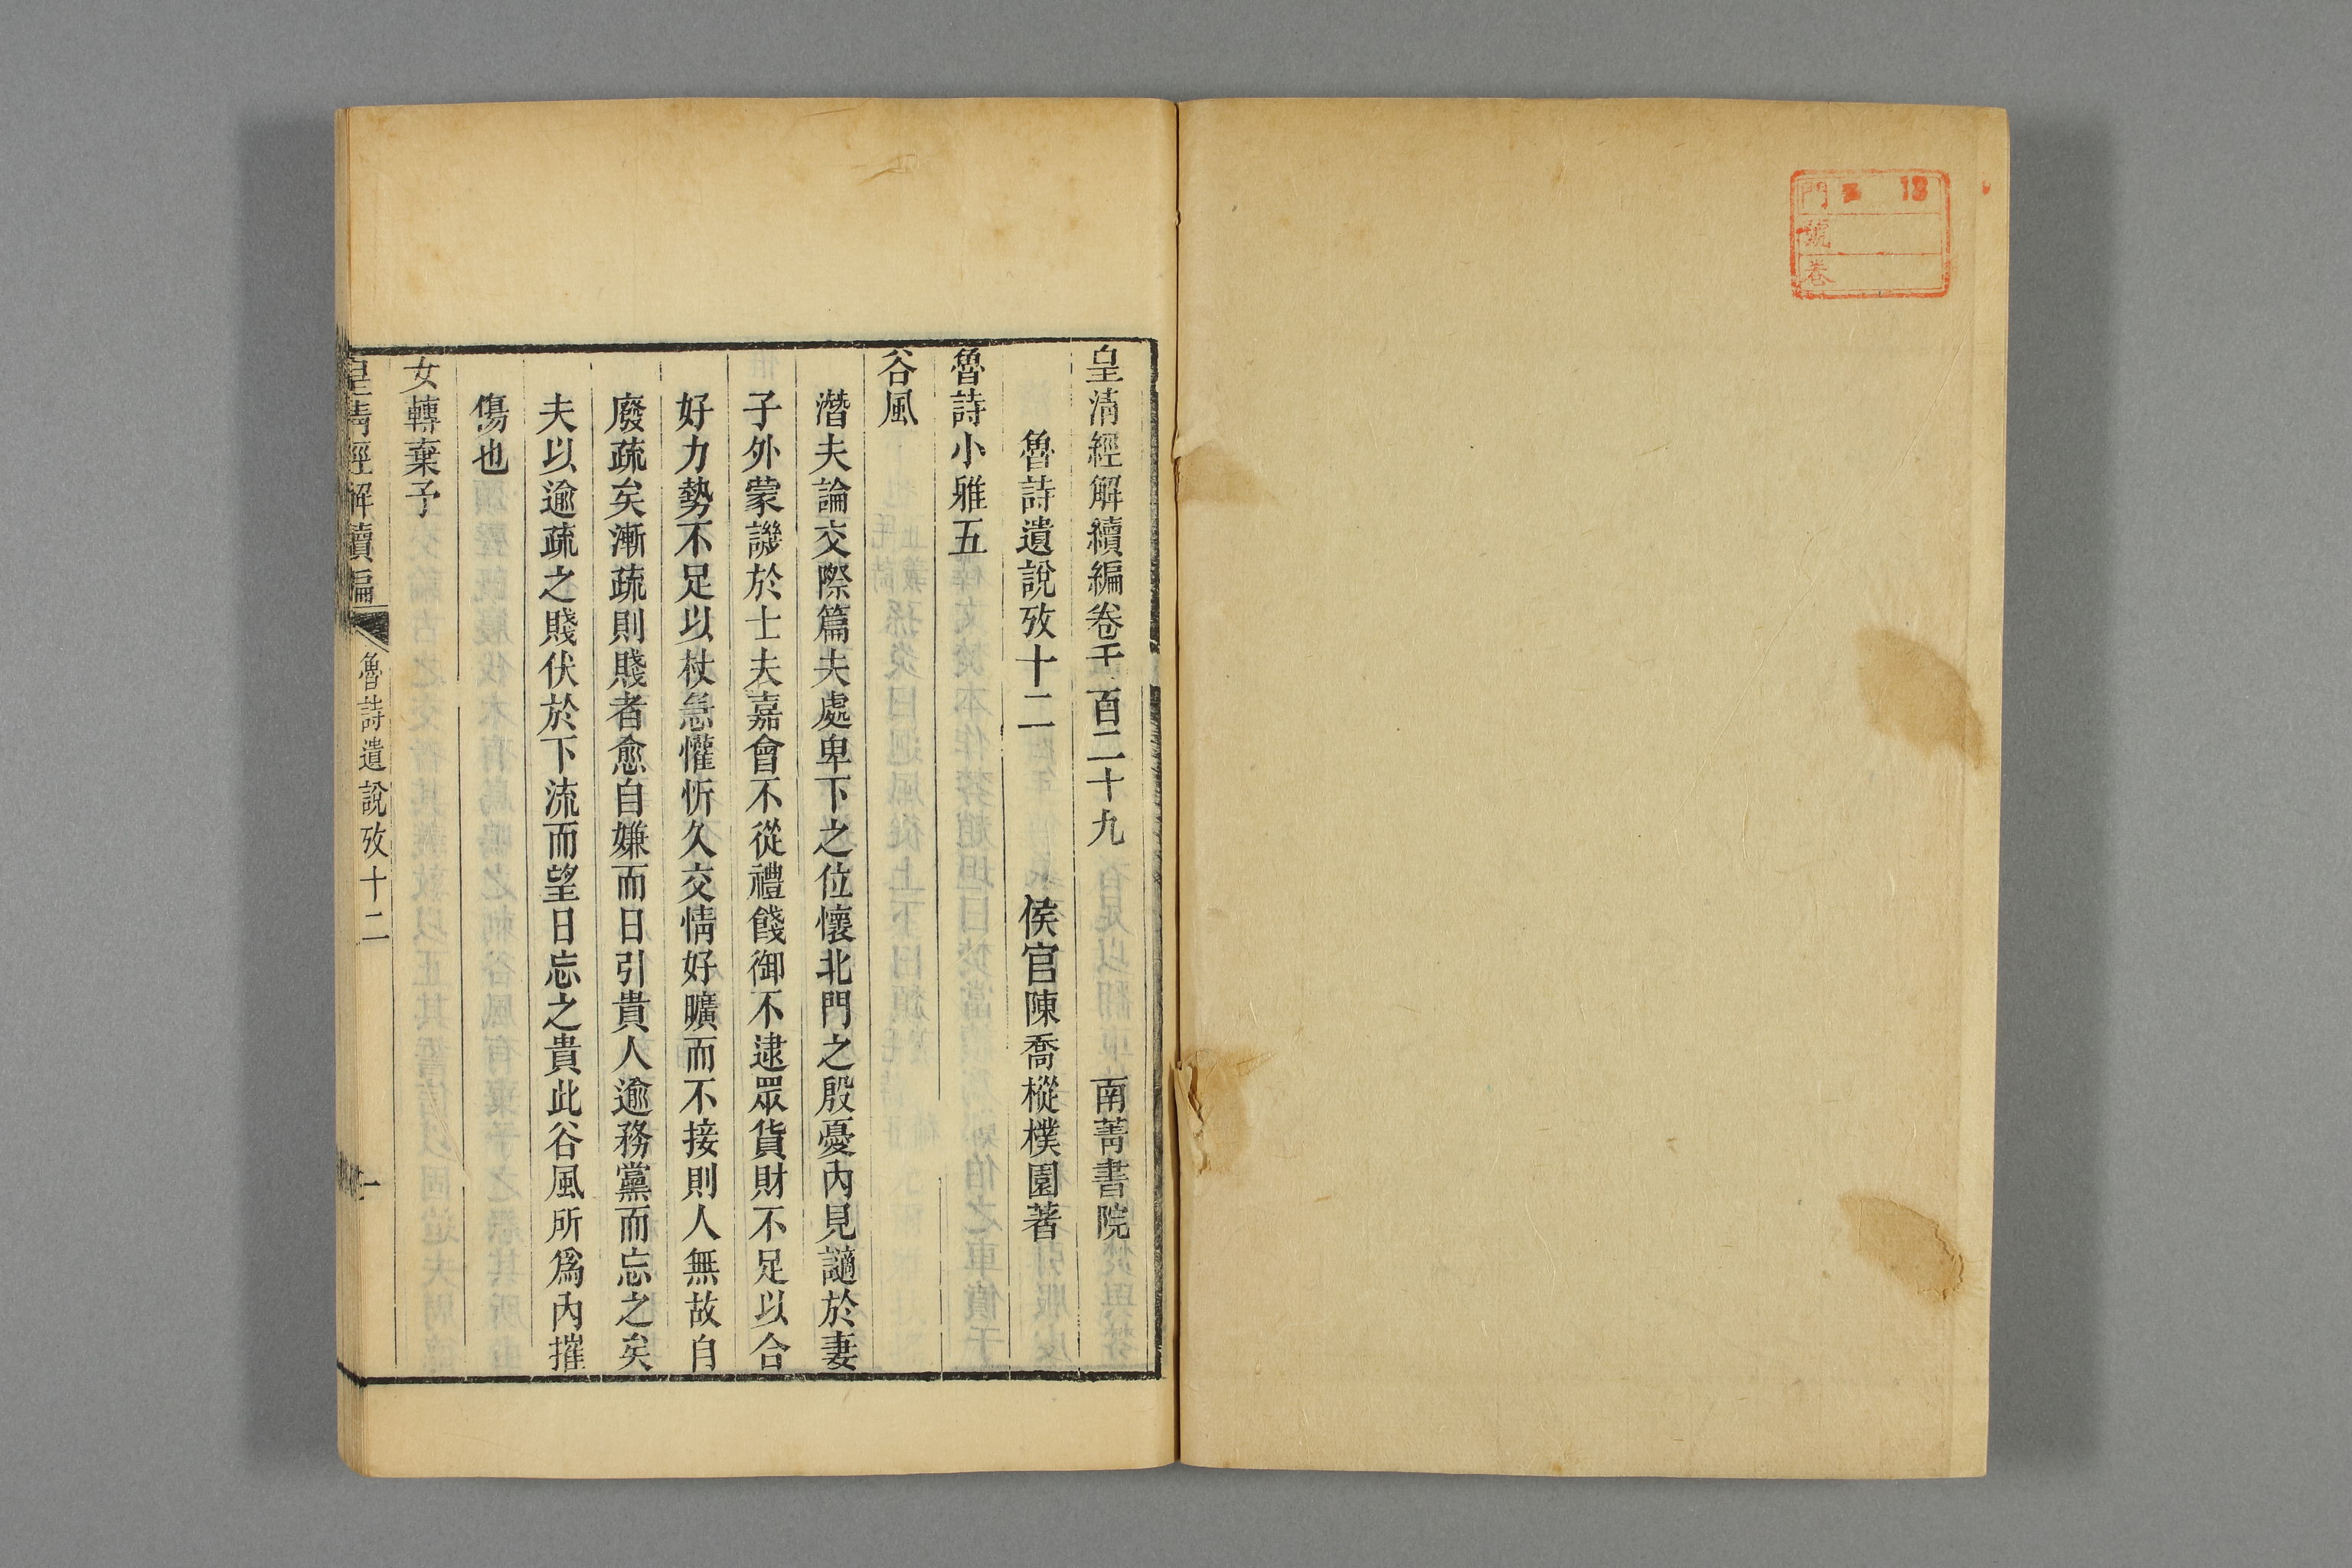 門 13
號
卷
皇清經解續編卷千一百二十九 南菁書院
魯詩遺說攷十二 侯官陳喬樅樸園著
魯詩小雅五
谷風
潛夫論交際篇夫處卑下之位懷北門之殷憂內見讁於妻
子外蒙譏於士夫嘉會不從禮餞御不逮眾貨財不足以合
好力勢不足以杖急懽忻久交情好曠而不接則人無故自
廢疏矣漸疏則賤者愈自嫌而日引貴人逾務黨而忘之矣
夫以逾疏之賤伏於下流而望日忘之貴此谷風所爲內摧
傷也
女轉棄予
皇清經解續編 魯詩遺說攷十二 一